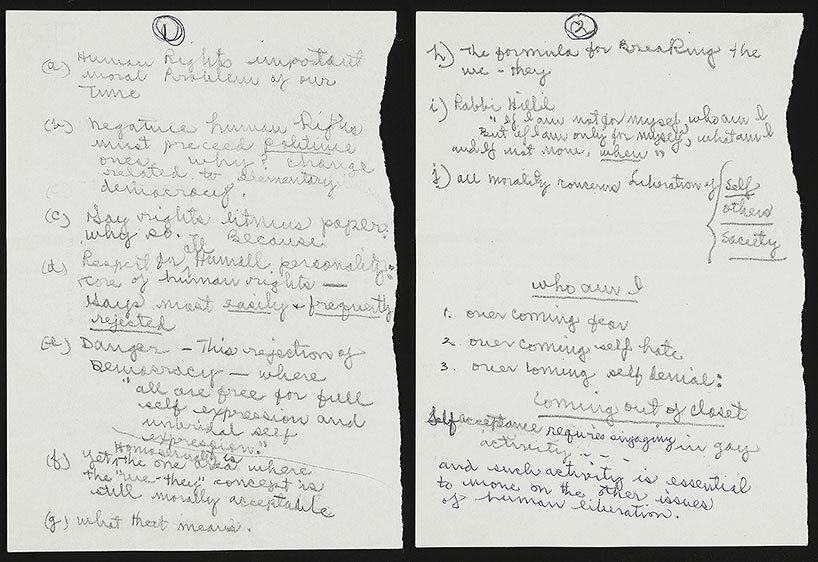 1
(a) Human Rights important
moral Problem of our
Time
(b) negative human Rights
must preceed positive
ones. why? change
related to elementary
democracy.
(c) Gay rights litmus paper.
why so. Because
(d) Respect for all Human personality:
core of human rights —
gays most easily & frequently
rejected
(e) Danger — This rejection of
Democracy — where
"all are free for full
self expression and
self
expression."
Homosexuality is
(f) Yet the one area where
the "we-they" concept is
still morally acceptable
(g) what that means.
2
h) The formula for Breaking the
we - they
i) Rabbi Hillel
"If I am not for myself, who am I
But if I am only for myself, what am I
and if not now, when"
j) all morality concerns Liberation of self
others
Society
who am I
1. over coming fear
2. over coming self hate
3. over coming self denial:
Coming out of closet
Self acceptance requires engaging in gay
activity - - -
and such activity is essential
to move on the other issues
of human liberation.